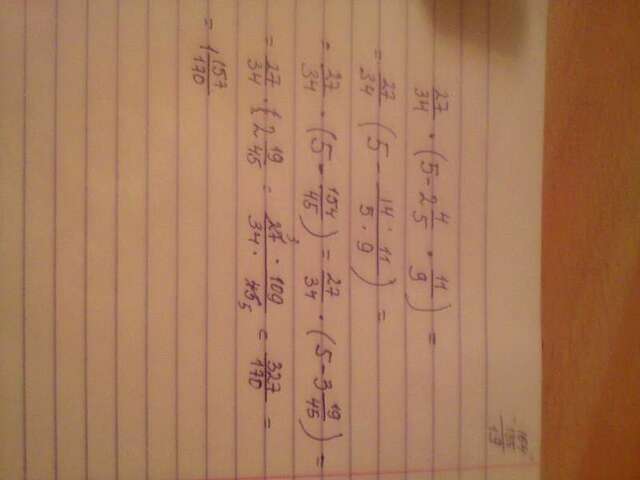 27/34 · (5 - 2 4/5 · 11/9) =
= 27/34 (5 - 14 · 11/5 · 9) =
= 27/34 · (5 - 154/45) = 27/34 · (5 - 3 19/45) =
= 27/34 · (2 19/45 = 27 3 · 109/34 · 45 5 = 327/170 =
= 1 157/170